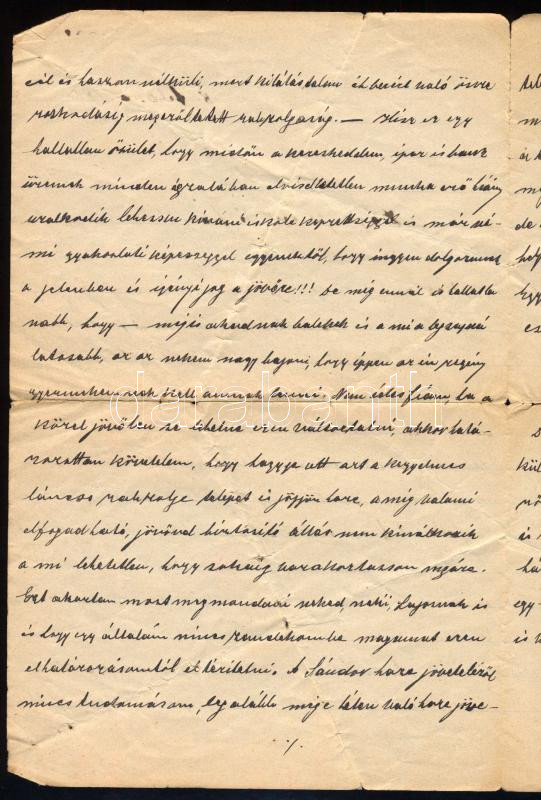 cél és haszon nélküli, mert kilátástalan éhbérért való össze
roskodásig megerőltetett rabszolgaság. — Hisz ez egy
hallatlan őrület, hogy midőn a kereskedelem, ipar és bank
üzemek minden ágazatában elviselhetetlen munka erő hiány
uralkodik lehessen kívánni iskola képzettséggel és már né-
mi gyakorlati képességgel egyenektől, hogy ingyen dolgozzanak
a jelenben és igényi jog a jövőre!!! de még ennél is hallatla
nabb, hogy — mégis akadnak balekok és a mi a legszajná
latosabb, az az nekem nagy bajom, hogy éppen az én szegény
gyermekemnek kell annak lenni. Nem édes fiam, ha a
közel jövőben se lehetne ezen változtatni, akkor hatá-
rozottan követelem, hogy hagyja ott azt a kegyelmes
láncos rabszolga telepet és jöjjön haza, a míg valami
elfogadható, jövővel biztosító állás nem kínálkozik
a mi lehetetlen, hogy sokáig várakoztasson magára.
Ezt akartam most megmondani neked, neki, Lajosnak is
és hogy egyáltalán nincs szándékomba magamat ezen
elhatározásomtól eltéríteni. A Sándor haza jöveteléről
nincs tudomásom, legalább mége télen való haza jöve-
./.
darabanth